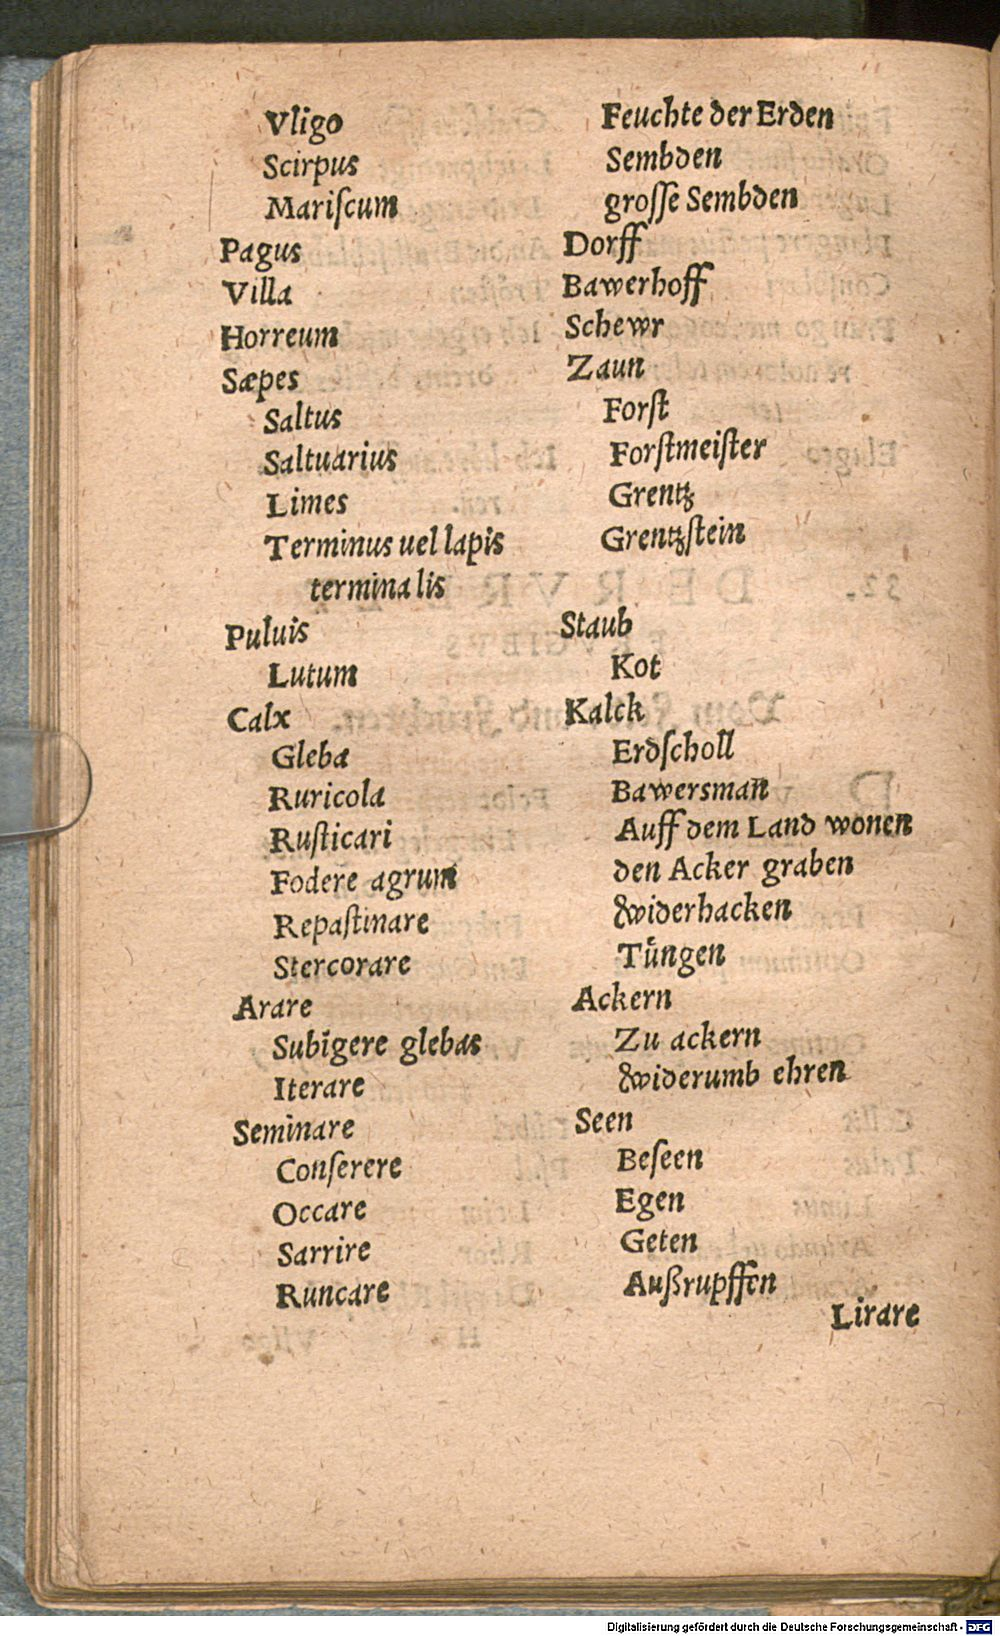 Vligo Feuchte der Erden
Scirpus Sembden
Mariſcum groſſe Sembden
Pagus Dorff
Villa Bawerhoff
Horreum Schewr
Sæpes Zaun
Saltus Forſt
Saltuarius Forſtmeiſter
Limes Grentz
Terminus uel lapis Grentzſtein
terminalis
Puluis Staub
Lutum Kot
Calx Kalck
Gleba Erdſcholl
Ruricola Bawersman̄
Ruſticari Auff dem Land wonen
Fodere agrum den Acker graben
Repaſtinare widerhacken
Stercorare Tüngen
Arare Ackern
Subigere glebas Zu ackern
Iterare widerumb ehren
Seminare Seen
Conſerere Beſeen
Occare Egen
Sarrire Geten
Runcare Außrupffen
Lirare
Digitalisierung gefördert durch die Deutsche Forschungsgemeinschaft - DFG